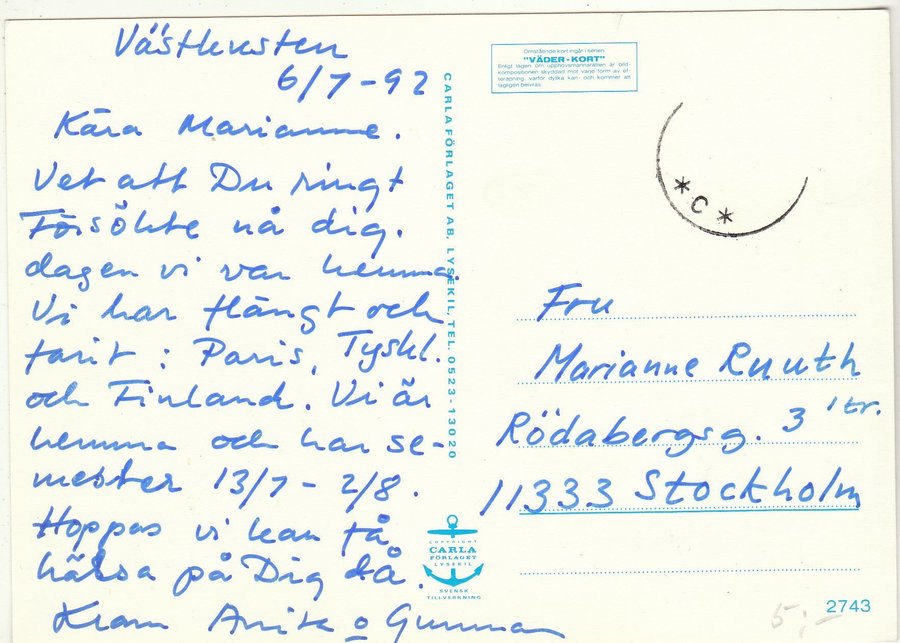 Västkusten
6/7-92
Kära Marianne.
Vet att Du ringt
Försökte nå dig.
dagen vi var hemma.
Vi har flängt och
farit: Paris, Tyskl.
och Finland. Vi är
hemma och har se-
mester 13/7 - 2/8.
Hoppas vi kan få
hälsa på Dig då.
Kram Anita o Gunnar
CARLA FÖRLAGET AB. LYSEKIL, TEL. 0523-13020
Omstående kort ingår i serien
"VÄDER-KORT"
Enligt lagen om upphovsmannarätten är bild-
kompositionen skyddad mot varje form av ef-
terapning, varför dylika kan- och kommer att
lagligen beivras.
*C*
Fru
Marianne Ruuth
Rödabergsg. 3 1 tr.
11333 Stockholm
COPYRIGHT
CARLA
FÖRLAGET
LYSEKIL
SVENSK
TILLVERKNING
5:-
2743